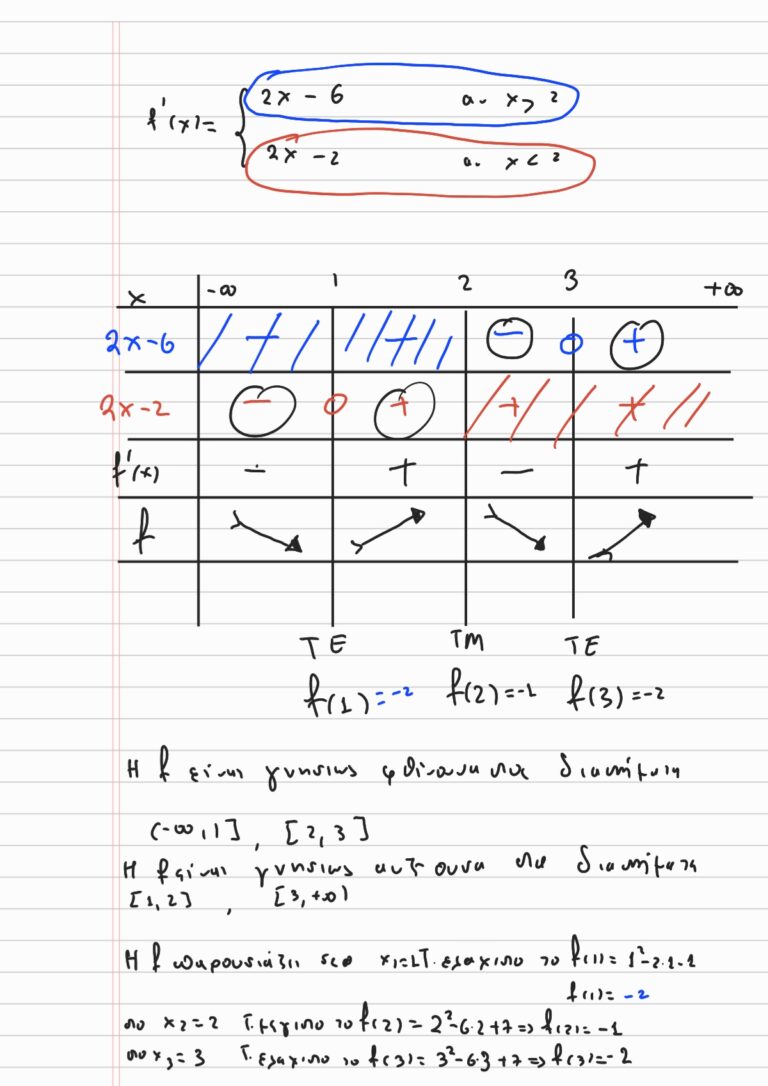 f'(x)= { 2x - 6 αν x > 2
2x - 2 αν x < 2
x -∞ 1 2 3 +∞
2x-6 + + - 0 +
2x-2 - 0 + + +
f'(x) - + - +
f
TE TM TE
f(1)=-2 f(2)=-1 f(3)=-2
Η f είναι γνησίως φθίνουσα στα διαστήματα
(-∞,1] , [2,3]
Η f είναι γνησίως αύξουσα στα διαστήματα
[1,2] , [3,+∞)
Η f παρουσιάζει στο x₁=1 Τ.ελάχιστο το f(1)=1²-2·1-1
f(1)=-2
στο x₂=2 Τ.μέγιστο το f(2)=2²-6·2+7=>f(2)=-1
στο x₃=3 Τ.ελάχιστο το f(3)=3²-6·3+7=>f(3)=-2